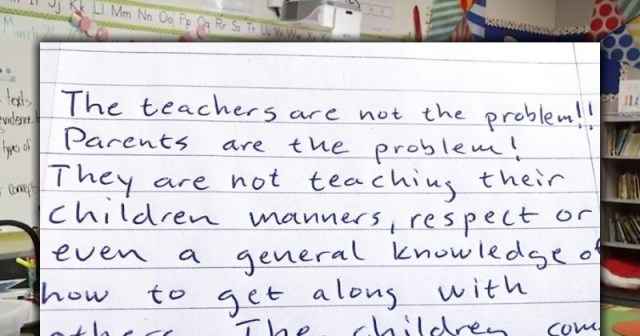 Kk Ll Mm Nn Oo Pp Qq Rr Ss Tt Uu Vv Ww
texts
types of
The teachers are not the problem!!
Parents are the problem!
They are not teaching their
children manners, respect or
even a general knowledge of
how to get along with
others. The children com